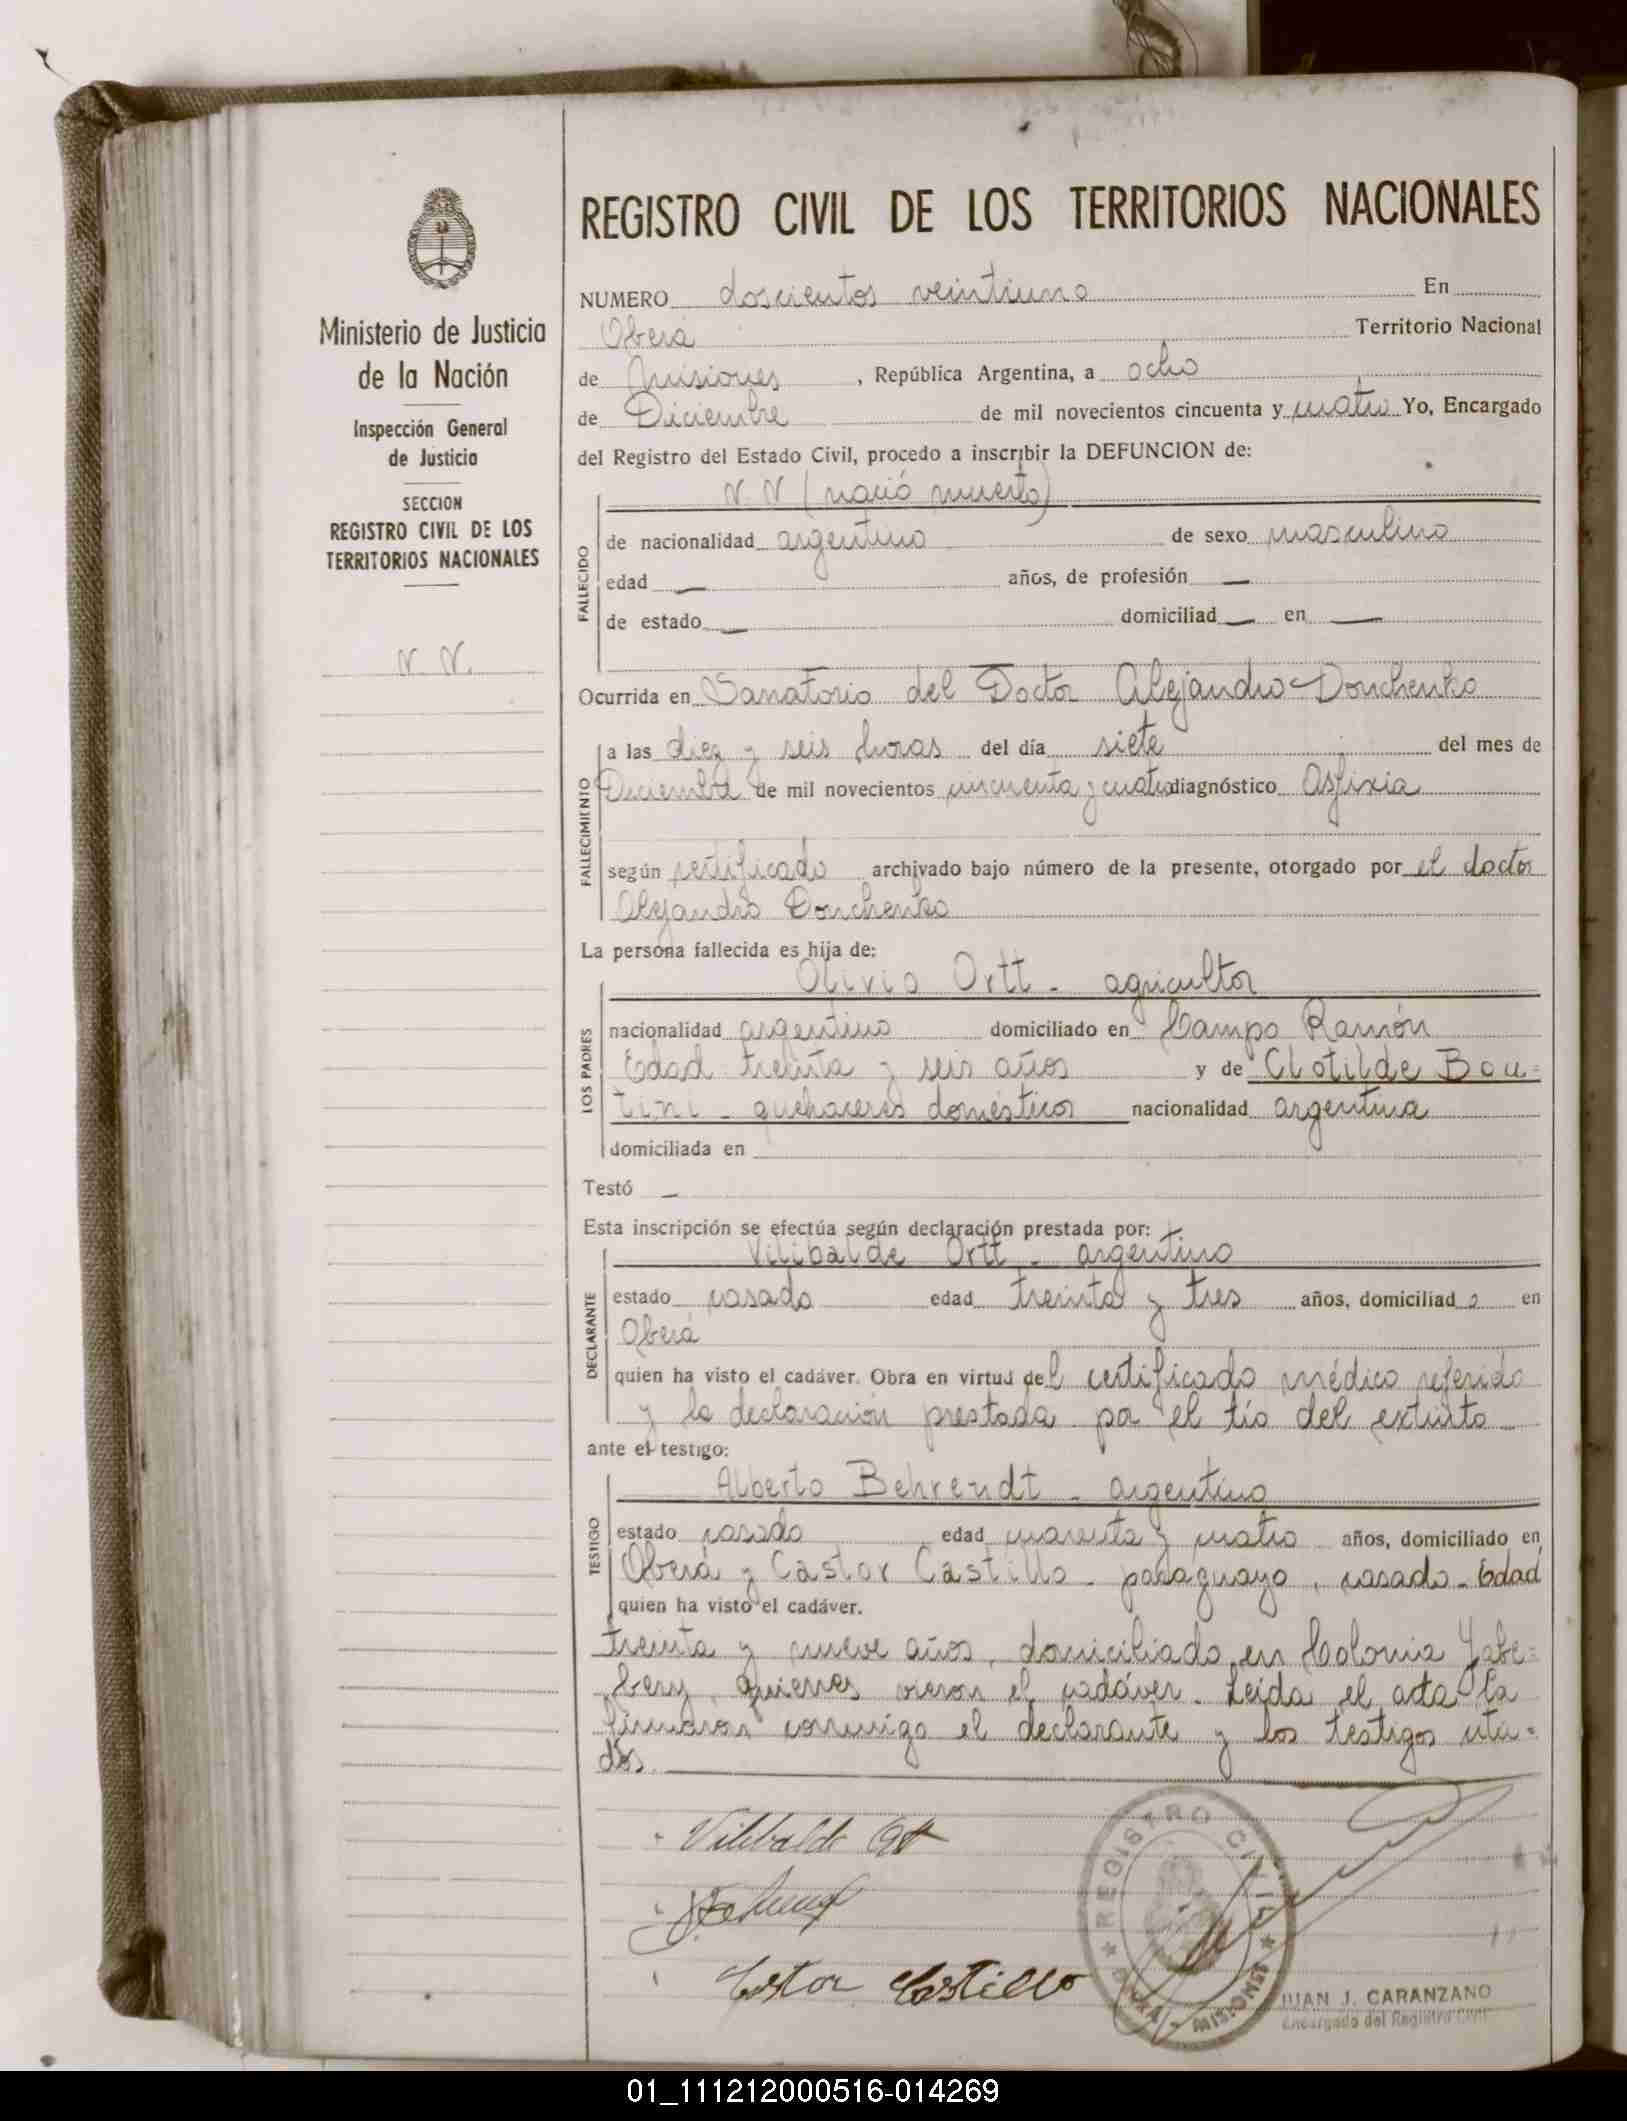 REGISTRO CIVIL DE LOS TERRITORIOS NACIONALES
Ministerio de Justicia
de la Nación
Inspección General
de Justicia
SECCION
REGISTRO CIVIL DE LOS
TERRITORIOS NACIONALES
N. N.
NUMERO doscientos veintiuno En
Oberá Territorio Nacional
de Misiones , República Argentina, a ocho
de Diciembre de mil novecientos cincuenta y cuatro Yo, Encargado
del Registro del Estado Civil, procedo a inscribir la DEFUNCION de:
N. N (nació muerto)
FALLECIDO
de nacionalidad argentino de sexo masculino
edad — años, de profesión —
de estado — domiciliad — en —
Ocurrida en Sanatorio del Doctor Alejandro Donchenko
FALLECIMIENTO
a las diez y seis horas del día siete del mes de
Diciembre de mil novecientos cincuenta y cuatro diagnóstico Asfixia
según certificado archivado bajo número de la presente, otorgado por el doctor
Alejandro Donchenko
La persona fallecida es hija de:
LOS PADRES
Olivio Ortt - agricultor
nacionalidad argentino domiciliado en Campo Ramón
Edad treinta y seis años y de Clotilde Bou=
tini - quehaceres domésticos nacionalidad argentina
domiciliada en
Testó —
Esta inscripción se efectúa según declaración prestada por:
DECLARANTE
Vilibalde Ortt - argentino
estado casado edad treinta y tres años, domiciliad o en
Oberá
quien ha visto el cadáver. Obra en virtud del certificado médico referido
y la declaración prestada por el tío del extinto
ante el testigo:
TESTIGO
Alberto Behrendt - argentino
estado casado edad cuarenta y cuatro años, domiciliado en
Oberá y Castor Castillo - paraguayo, casado - Edad
quien ha visto el cadáver.
treinta y nueve años, domiciliado en Colonia Yabe=
bery, quienes vieron el cadáver. Leida el acta la
firmaron conmigo el declarante y los testigos cita=
dos.
Vilibalde Ortt
Castor Castillo
REGISTRO CIVIL
OBERA - MISIONES
JUAN J. CARANZANO
Encargado del Registro Civil
01_111212000516-014269